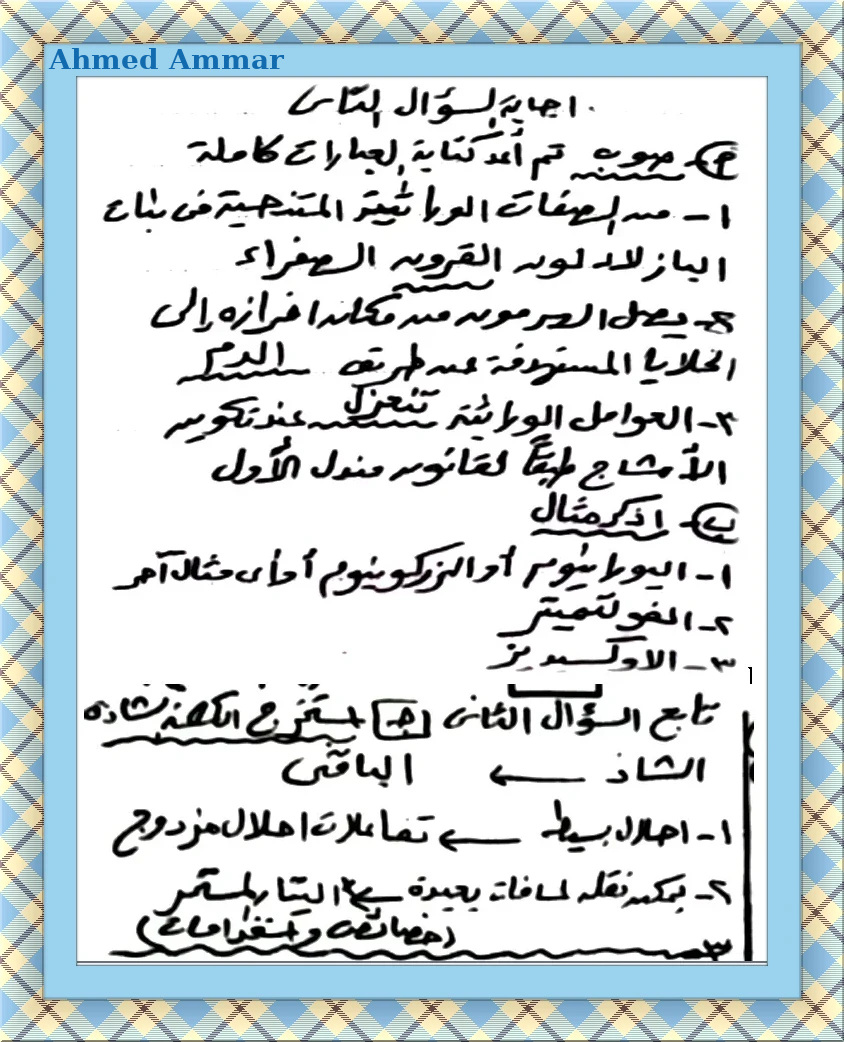 Ahmed Ammar
اجابة السؤال الثانى
(P) صوب ثم أعد كتابة العبارات كاملة
١- من الصفات الوراثية المتنحية فى نبات
البازلاء لون القرون الصفراء
٢- يصل الهرمون من مكان افرازه إلى
الخلايا المستهدفة عن طريق الدم
٣- العوامل الوراثية تنعزل عند تكوين
الأمشاج طبقاً لقانون مندل الأول
(ب) اذكر مثال
١- اليورانيوم أو الزركونيوم أو أى مثال آخر
٢- الفولتميتر
٣- الاوكسيديز
تابع السؤال الثانى [جـ] استخرج الكلمة الشاذة
الشاذ ← الباقى
١- احلال بسيط ← تفاعلات احلال مزدوج
٢- يمكن نقله لمسافات بعيدة ← التيار المستمر
(خصائص واستخدامات)
٣-